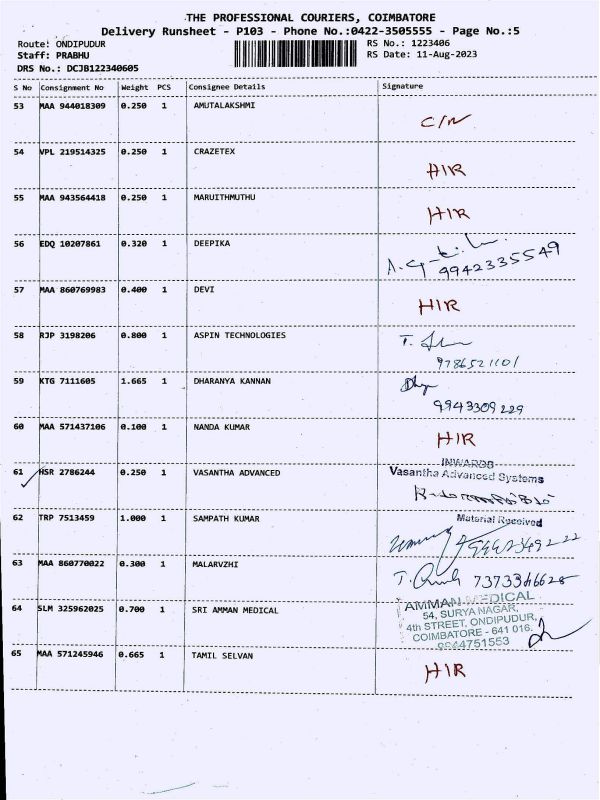 THE PROFESSIONAL COURIERS, COIMBATORE
Delivery Runsheet - P103 - Phone No.:0422-3505555 - Page No.:5
Route: ONDIPUDUR RS No.: 1223406
Staff: PRABHU RS Date: 11-Aug-2023
DRS No.: DCJB122340605
S No Consignment No Weight PCS Consignee Details Signature
53 MAA 944018309 0.250 1 AMUTALAKSHMI
C/N
54 VPL 219514325 0.250 1 CRAZETEX
HIR
55 MAA 943564418 0.250 1 MARUITHMUTHU
HIR
56 EDQ 10207861 0.320 1 DEEPIKA
9942335549
57 MAA 860769983 0.400 1 DEVI
HIR
58 RJP 3198206 0.800 1 ASPIN TECHNOLOGIES
9786521101
59 KTG 7111605 1.665 1 DHARANYA KANNAN
9943309229
60 MAA 571437106 0.100 1 NANDA KUMAR
HIR
INWARDS
61 HSR 2786244 0.250 1 VASANTHA ADVANCED Vasantha Advanced Systems
62 TRP 7513459 1.000 1 SAMPATH KUMAR Material Received
63 MAA 860770022 0.300 1 MALARVZHI
7373366628
64 SLM 325962025 0.700 1 SRI AMMAN MEDICAL AMMAN MEDICAL
54, SURYA NAGAR,
4th STREET, ONDIPUDUR,
COIMBATORE - 641 016.
65 MAA 571245946 0.665 1 TAMIL SELVAN
HIR